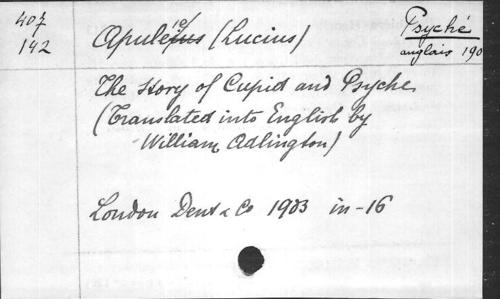 407
142
Apuleius (Lucius)
Psyché
anglais 190
The Story of Cupid and Psyche
(Translated into English by
William Adlington)
London Dent & Co 1903 in-16